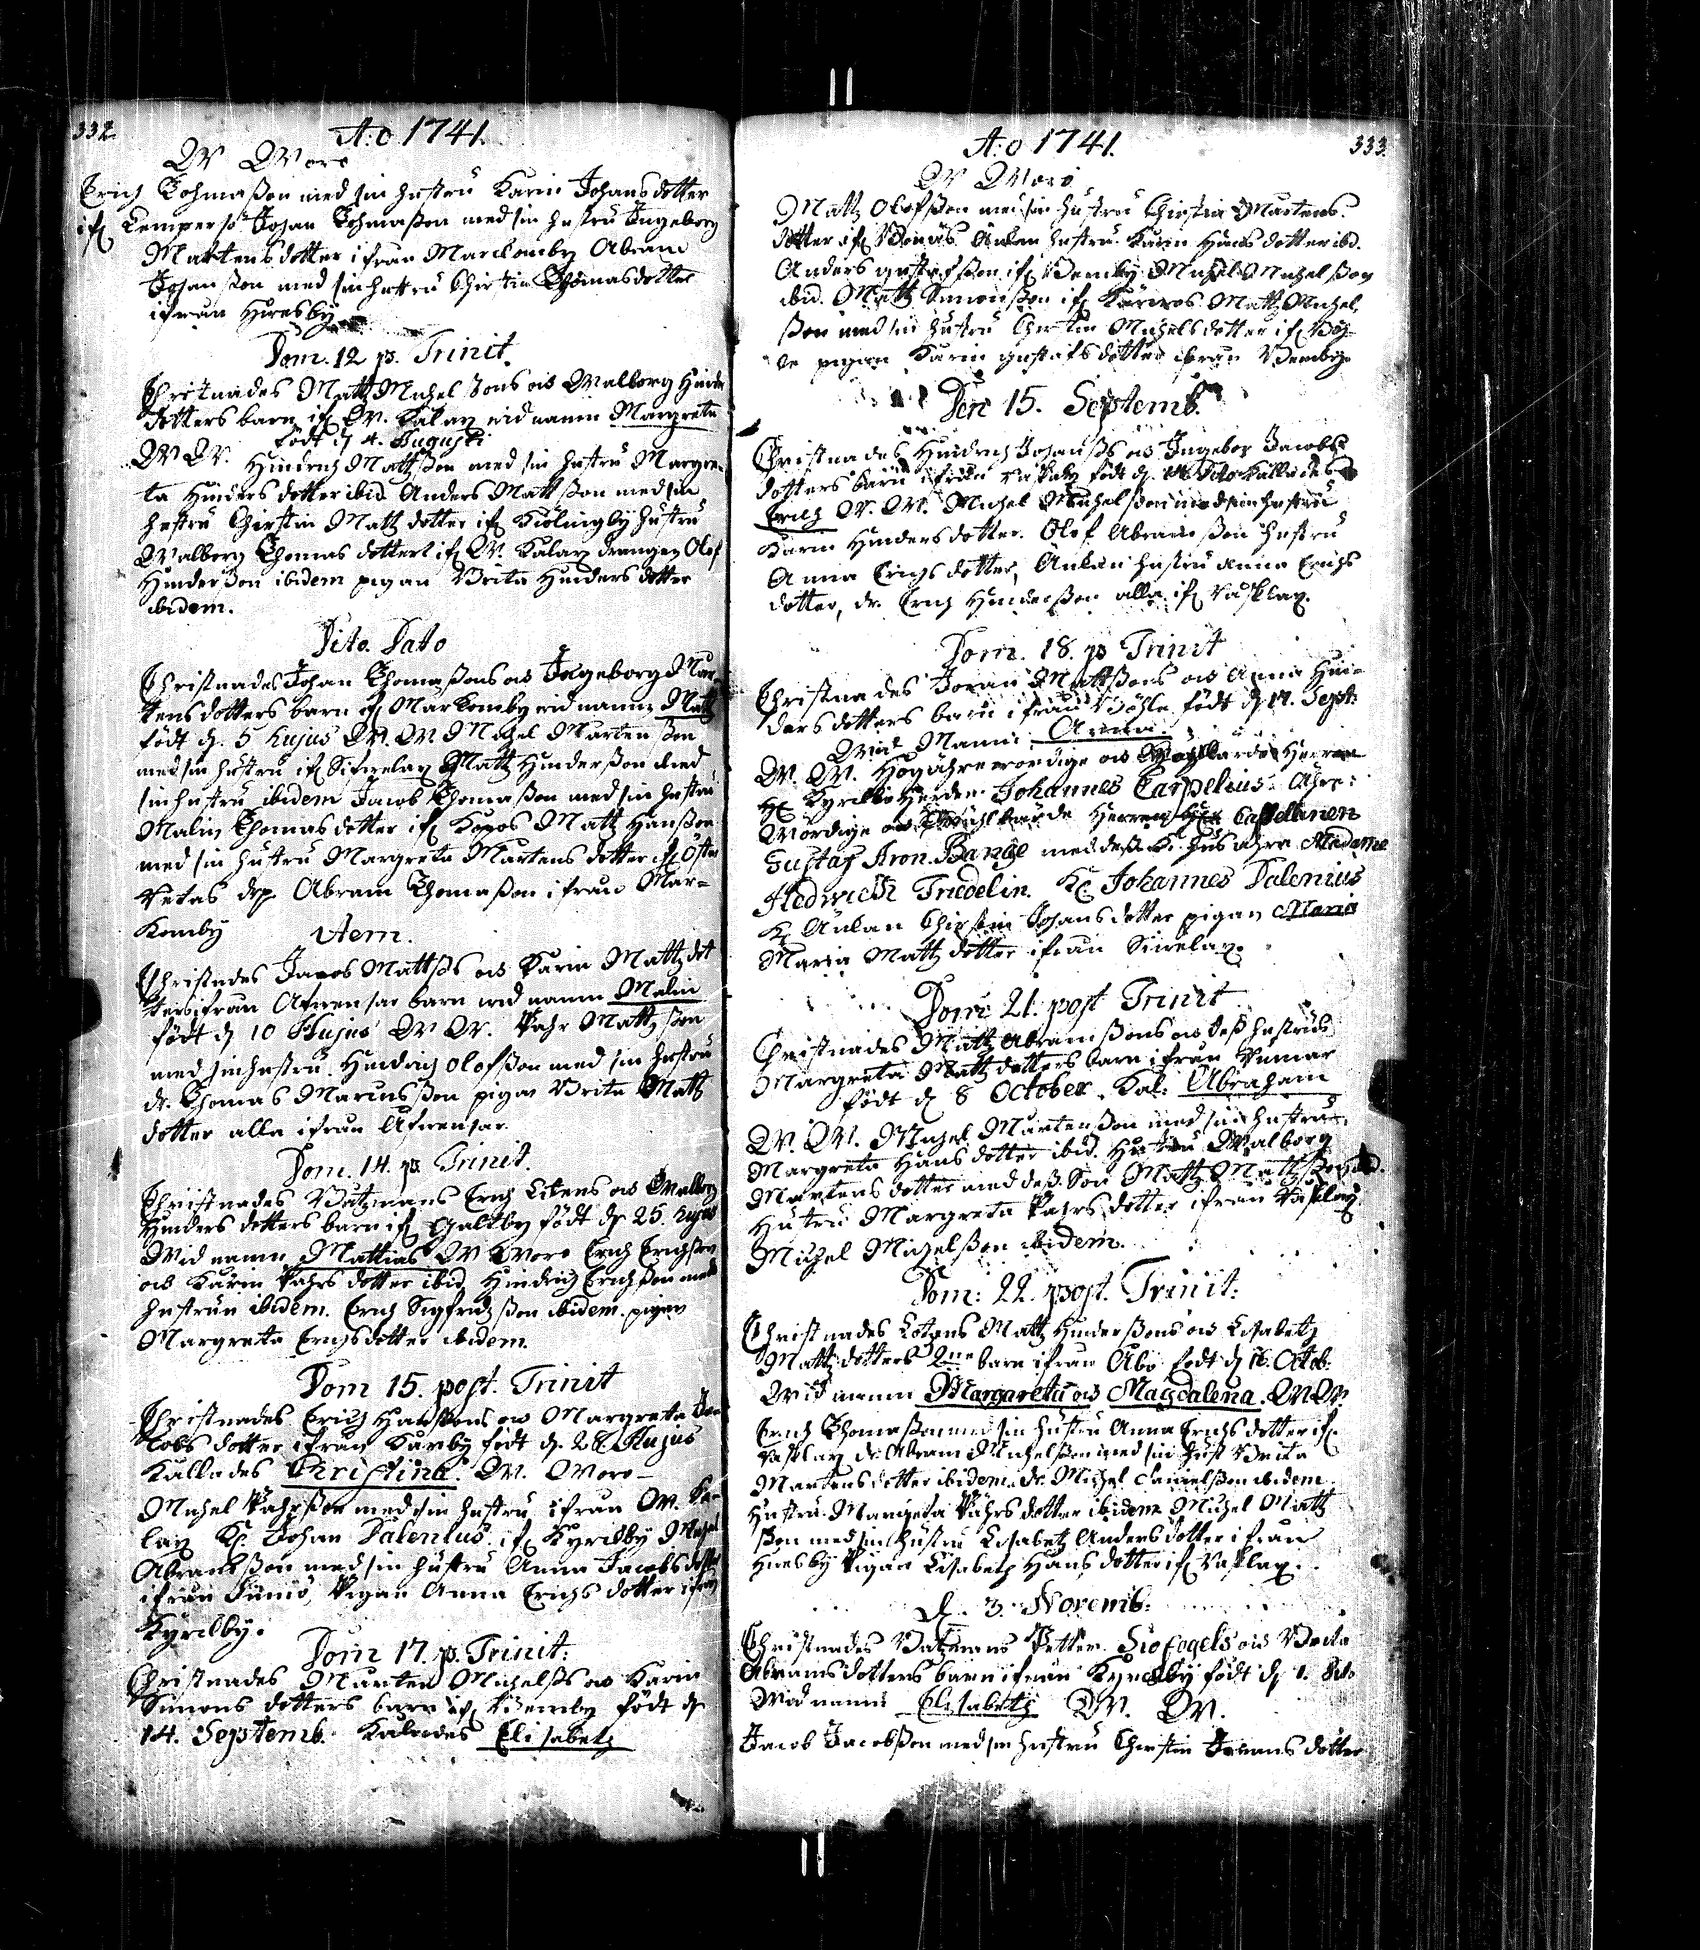 332.
A:o 1741.
W Woro
Erich Tohmaßon med sin hustru Karin Johans dotter
ifr Lempersö Johan Tohmaßon med sin hustru Ingeborg
Mårtens dotter ifrån Marckomby Abram
Johanßon med sin hustru Chirstin Thomas dotter
ifrån Hiresby
Dom. 12 p. Trinit.
Christnades Matz Michel Sons och Walborg Hinders
dotters barn ifr W. Kalax vid namn Margreta
födt d 4. Augusti
W W. Hindrich Mattßon med sin hustru Margre-
ta Hinders dotter ibid. Anders Mattßon med sin
hustru Chirstin Matz dotter ifr Kiölingby hustru
Walborg Thomas dotter ifr W. Kalax drängen Olof
Hinderßon ibidem pigan Brita Hinders dotter
ibidem.
Dito Dato
Christnades Johan Thomaßons och Ingeborg Mår-
tens dotters barn ifr Markomby vid namn Matz
födt d. 5 hujus W. W Michel Mårtenßon
med sin hustru ifr Sinnelax Matz Hinderßon med
sin hustru ibidem Jacob Thomaßon med sin hustru
Malin Thomas dotter ifr Kopos Matz Hanßon
med sin hustru Margreta Mårtens dotter ifr Öster
Retas drg Abram Thomaßon ifrån Mar-
komby
Item.
Christnades Jacob Mattßs och Karin Matz dot
ters ifrån Afvensar barn vid namn Malin
födt d 10 Hujus W W. Påhr Matzßon
med sin hustru. Hindrich Olofßon med sin hustru
dr. Thomas Marcusßon pigan Brita Matz
dotter alla ifrån Afvensar.
Dom. 14. p Trinit.
Christnades Båtzmans Erich Litens och Walborg
Hinders dotters barn ifr Galtby födt d 25. hujus
Wid namn Mattias W Woro Erich Erichßon
och Karin Påhrs dotter ibid. Hindrich Erichßon med
hustrun ibidem. Erich Sigfridzßon ibidem. pigan
Margreta Erichsdotter ibidem.
Dom 15. post. Trinit
Christnades Erich Hanßons och Margreta Ja-
cobs dotter ifrån Karby födt d. 28. Hujus
Kallades Christina. W. Woro
Michel Påhrßon med sin hustru ifrån W. Ka-
lax Kl. Johan Dalenius ifr Kyrckby Michel
Abramßon med sin hustru Anna Jacobs dotter
ifrån Simio, Pigan Anna Erichs dotter ifrån
Kyrckby.
Dom 17. p. Trinit:
Christnades Mårten Michelßs och Karin
Simons dotters barn ifr Bemby födt d
14. Septemb. Kallades Elisabetz
333.
A:o 1741.
W Woro
Matz Olofßon med sin hustru Chirstin Mårtens
dotter ifr Bonäs Änkan hustru Karin Hans dotter ibd.
Anders gustafßon ifr Bemby Michel Michelßon
ibid. Matz Simonßon ifr Kärvos Matz Michel
ßon med sin hustru Chirstin Michels dotter ifr Böh-
le pigan Karin gustafs dotter ifrån Bemby
Den 15. Septemb.
Christnades Hindrich Johanßs och Ingebor Jacobs
dotters barn ifrån Väsklax födt d. 14 dito Kallades
Erich W. W. Michel Michelßon med sin hustru
Karin Hinders dotter. Olof Abramßon hustru
Anna Erichs dotter, Änkan hustru Anna Erichs
dotter, dr. Erich Hinderßon alla ifr Väsklax.
Dom. 18. p Trinit
Christnades Joran Mattßons och Anna Hin-
ders dotters barn ifrån Böhle födt d 17. Sept:
Wid Namn: Anna.
W. W. Högährewördige och Höglärde Herren
H. Kyrkio Herden Johannes Carpelius. Ähre:
Wördige och Wällärde Herren Capellanen
Gustaf Aron. Bange med deß K. hus ähra Madame
Hedwich Triedelin. Kl. Johannes Dalenius
K Änkan Chirstin Johans dotter pigan Maria
Maria Matz dotter ifrån Sinnelax.
Dom: 21. post Trinit
Christnades Matz Abramßons och deß hustrus
Margreta Matz dotters barn ifrån Rumar
födt d 8 October. Kal: Abraham
W. W. Michel Mårtenßon med sin hustru
Margreta Hans dotter ibid. Hustru Walborg
Mårtens dotter med deß Son Matz Matzßon ibid.
Hustru Margreta Påhrs dotter ifrån Väsklax
Michel Michelßon ibidem.
Dom: 22. post. Trinit:
Christnades Lotzens Matz Hinderßons och Lisabetz
Matz dotters 2ne barn ifrån Åbo födt d 16. Octob:
Wid namn Margareta och Magdalena. W W.
Erich Thomaßon med sin hustru Anna Erichs dotter ifr
Väsklax dr Abram Michelßon med sin hust Brita
Mårtens dotter ibidem. dr. Michel Danielßon ibidem
Hustru Margreta Påhrs dotter ibidem Michel Matz
ßon med sin hustru Lisabetz Anders dotter ifrån
Hiresby Pigan Lisabetz Hans dotter ifr Väsklax.
d. 3. Novemb:
Christnades Båtzmans Petter Siofogels och Brita
Abrams dotters barn ifrån Kyrckby födt d 1. dito
Wid namn Elisabetz W. W.
Jacob Jacobßon med sin hustru Chirstin Johans dotter